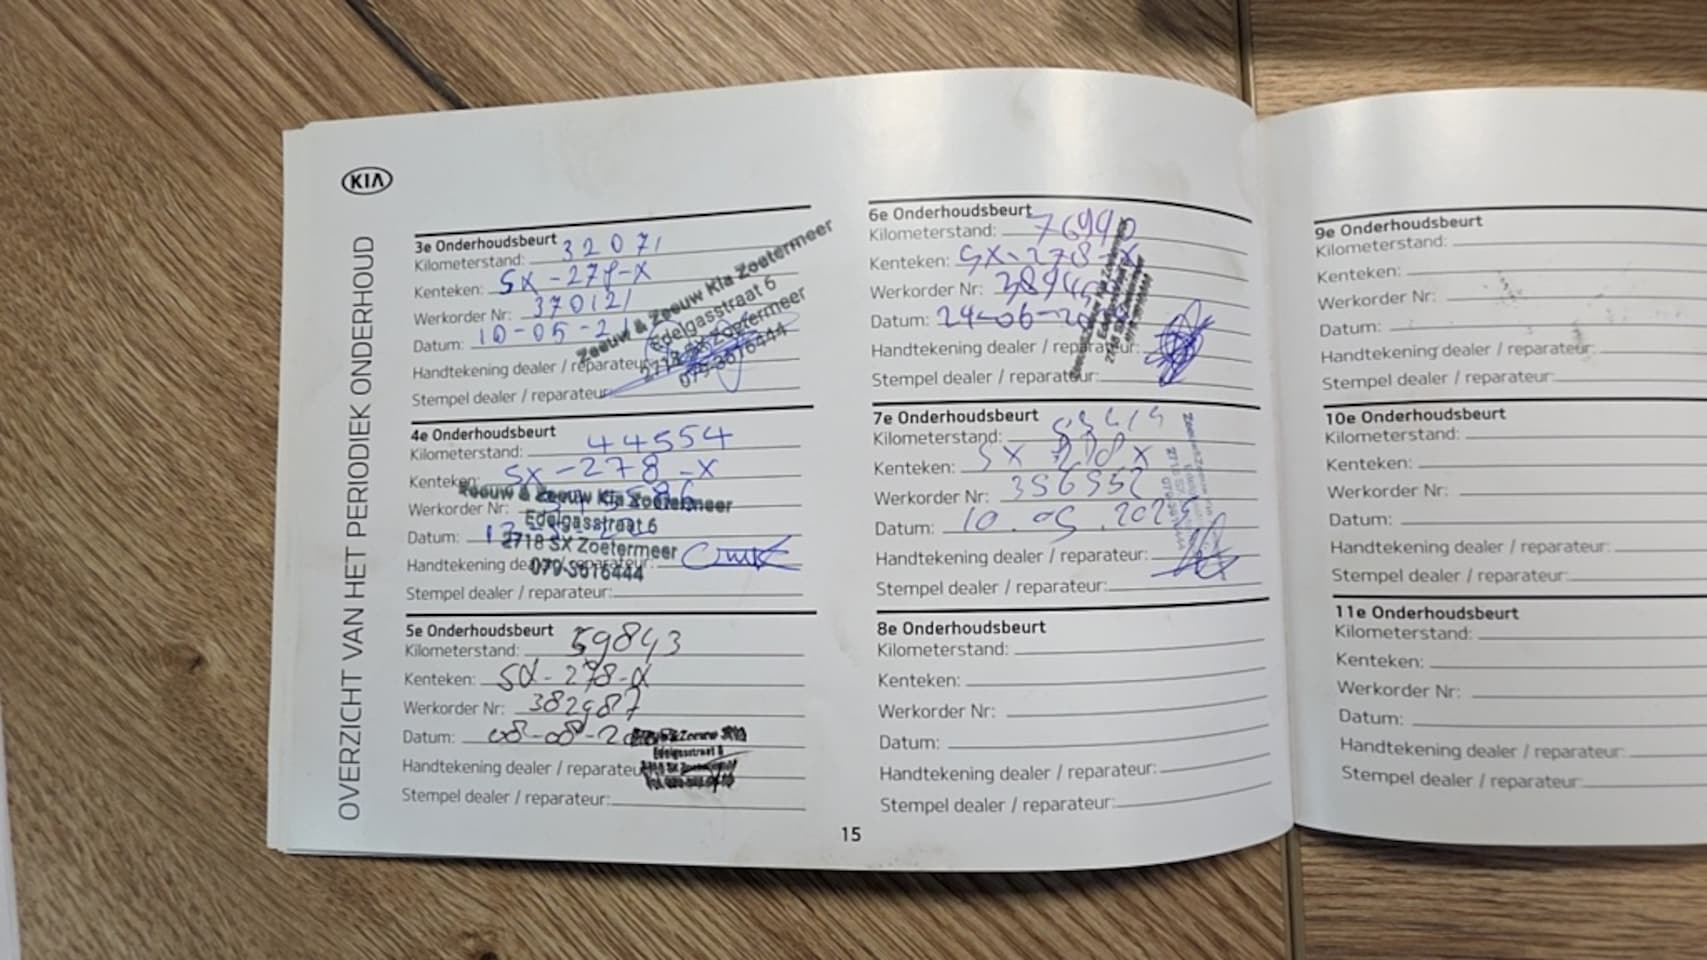 KIA
OVERZICHT VAN HET PERIODIEK ONDERHOUD
3e Onderhoudsbeurt
Kilometerstand: 32071
Kenteken: SX-278-X
Werkorder Nr: 370121
Datum: 10-05-21
Handtekening dealer / reparateur:
Stempel dealer / reparateur:
Zeeuw & Zeeuw Kia Zoetermeer
Edelgasstraat 6
2718 SX Zoetermeer
079-3616444
4e Onderhoudsbeurt
Kilometerstand: 44554
Kenteken: SX-278-X
Werkorder Nr:
Datum:
Handtekening dealer / reparateur:
Stempel dealer / reparateur:
Zeeuw & Zeeuw Kia Zoetermeer
Edelgasstraat 6
2718 SX Zoetermeer
079-3616444
5e Onderhoudsbeurt
Kilometerstand: 59843
Kenteken: SX-278-X
Werkorder Nr: 382987
Datum: 08-08-20
Handtekening dealer / reparateur:
Stempel dealer / reparateur:
6e Onderhoudsbeurt
Kilometerstand: 76990
Kenteken: SX-278-X
Werkorder Nr:
Datum: 24-06-20
Handtekening dealer / reparateur:
Stempel dealer / reparateur:
7e Onderhoudsbeurt
Kilometerstand:
Kenteken: SX 278 X
Werkorder Nr: 356552
Datum: 10.05.2025
Handtekening dealer / reparateur:
Stempel dealer / reparateur:
8e Onderhoudsbeurt
Kilometerstand:
Kenteken:
Werkorder Nr:
Datum:
Handtekening dealer / reparateur:
Stempel dealer / reparateur:
15
9e Onderhoudsbeurt
Kilometerstand:
Kenteken:
Werkorder Nr:
Datum:
Handtekening dealer / reparateur:
Stempel dealer / reparateur:
10e Onderhoudsbeurt
Kilometerstand:
Kenteken:
Werkorder Nr:
Datum:
Handtekening dealer / reparateur:
Stempel dealer / reparateur:
11e Onderhoudsbeurt
Kilometerstand:
Kenteken:
Werkorder Nr:
Datum:
Handtekening dealer / reparateur:
Stempel dealer / reparateur: